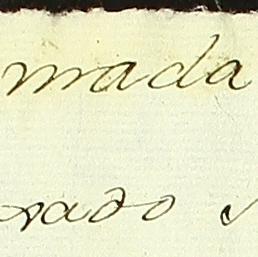 mada
rado